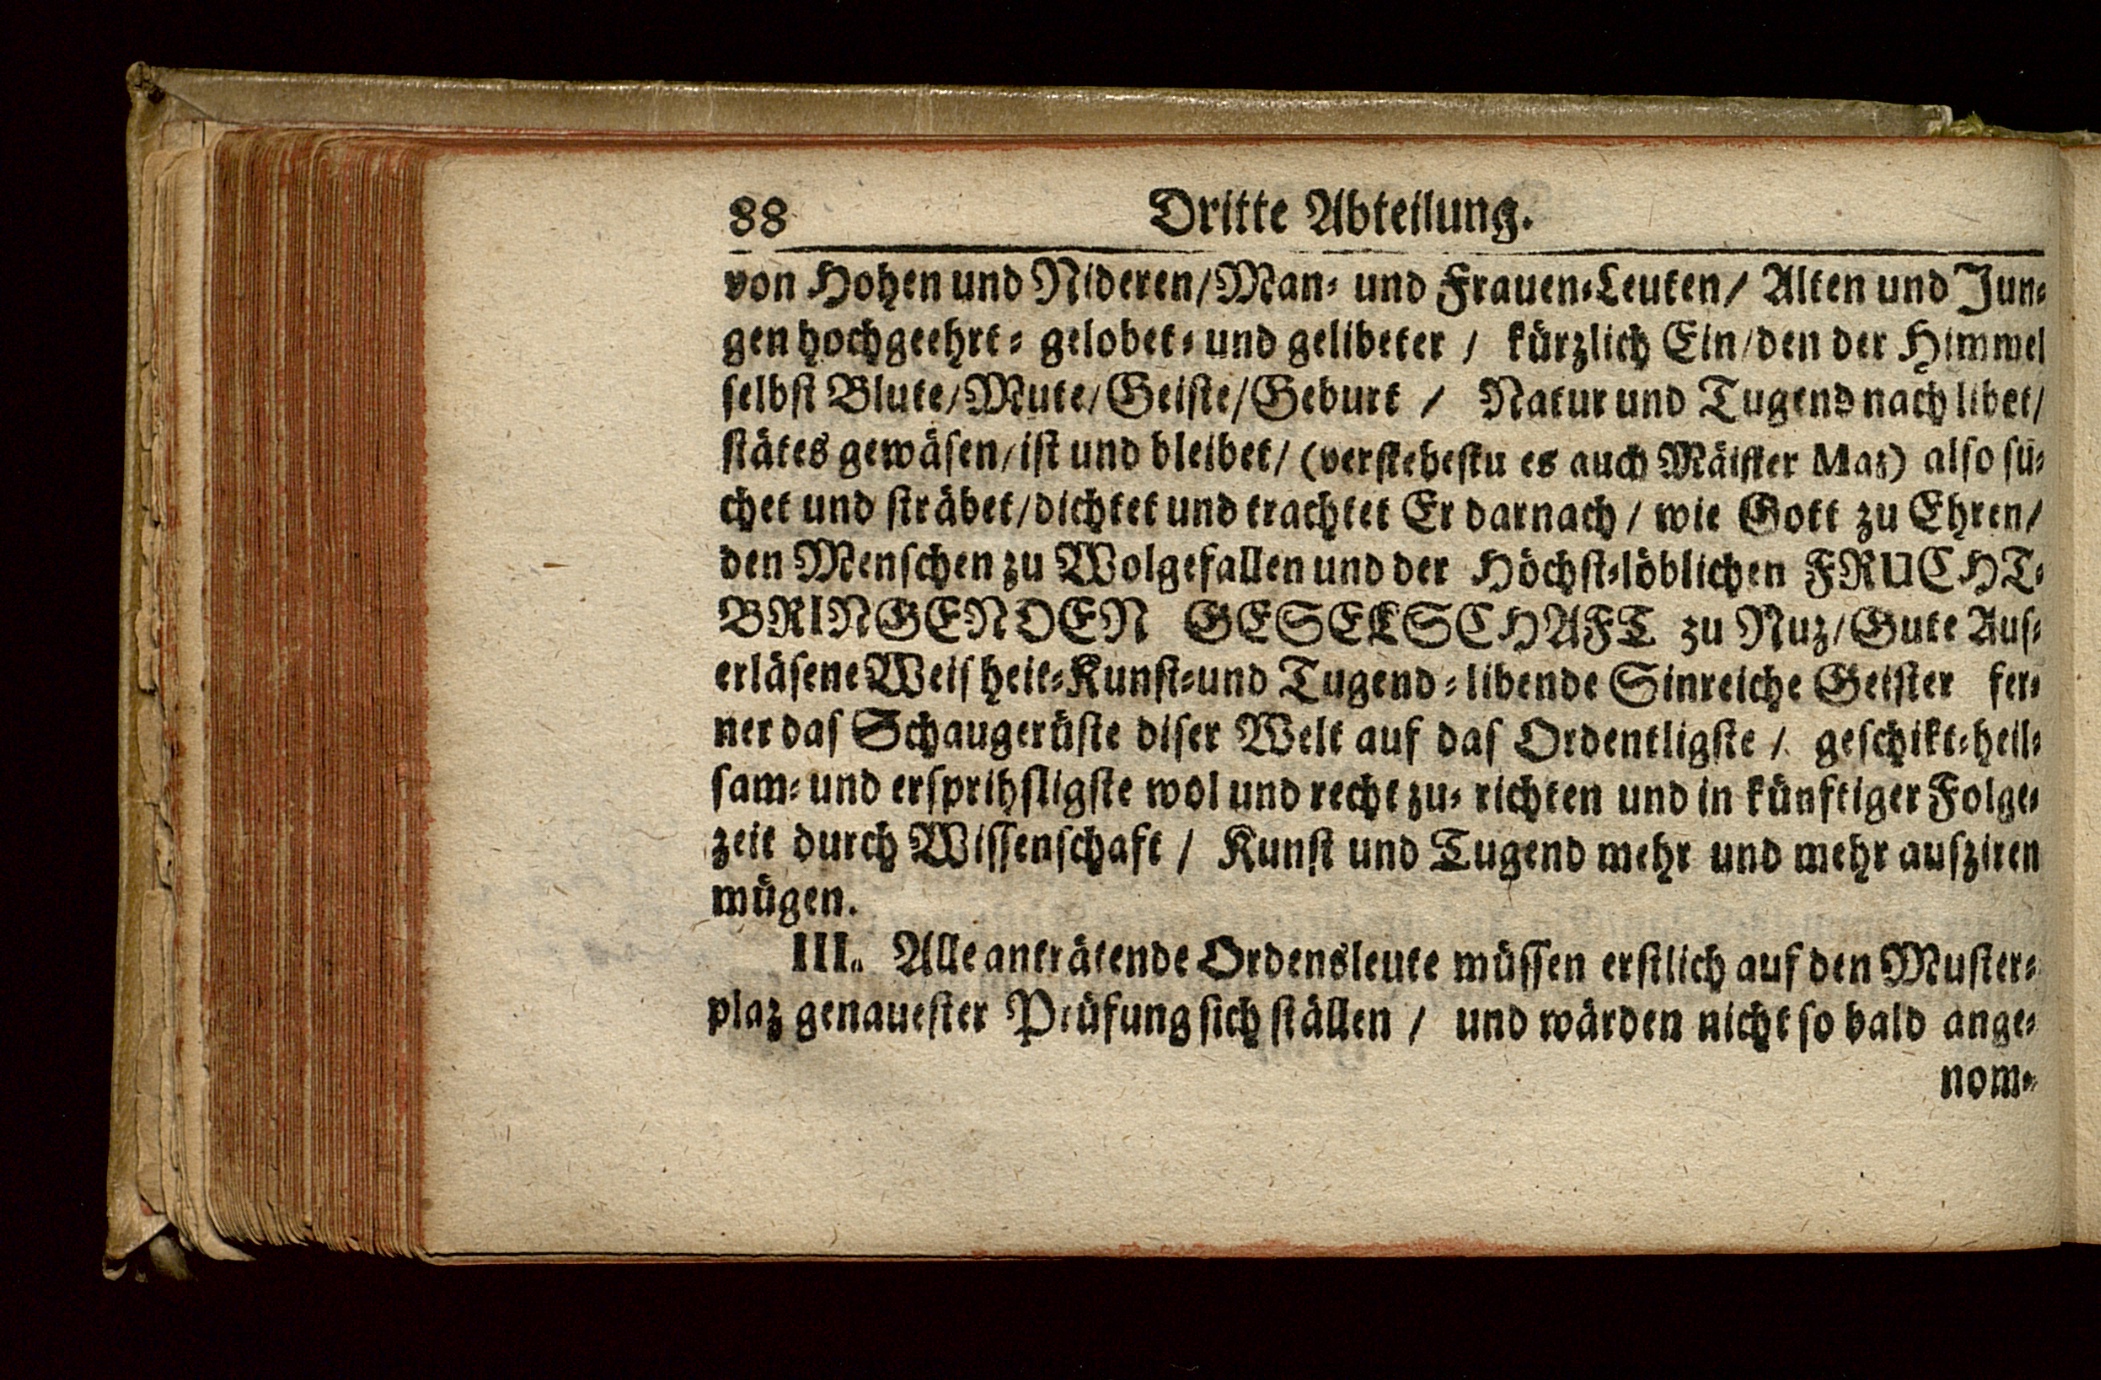 88 Dritte Abteilung.
von Hohen und Nideren/Man⸗ und Frauen⸗Leuten/ Alten und Jun⸗
gen hochgeehrt⸗ gelobet⸗ und gelibeter / kürzlich Ein/den der Himmel
selbst Blute/Mute/Geiste/Geburt / Natur und Tugend nach libet/
stätes gewäsen/ist und bleibet/ (verstehestu es auch Mäister Maz) also sü⸗
chet und sträbet/dichtet und trachtet Er darnach / wie Gott zu Ehren/
den Menschen zu Wolgefallen und der Höchst⸗löblichen FRUCHT⸗
BRINGENDEN GESELSCHAFT zu Nuz/Gute Aus⸗
erläsene Weisheit⸗Kunst⸗und Tugend⸗libende Sinreiche Geister fer⸗
ner das Schaugerüste diser Welt auf das Ordentligste / geschikt⸗heil⸗
sam⸗ und ersprihsligste wol und recht zu⸗ richten und in künftiger Folge⸗
zeit durch Wissenschaft / Kunst und Tugend mehr und mehr ausziren
mügen.
III. Alle anträtende Ordensleute müssen erstlich auf den Muster⸗
plaz genauester Prüfung sich ställen / und wärden nicht so bald ange⸗
nom⸗